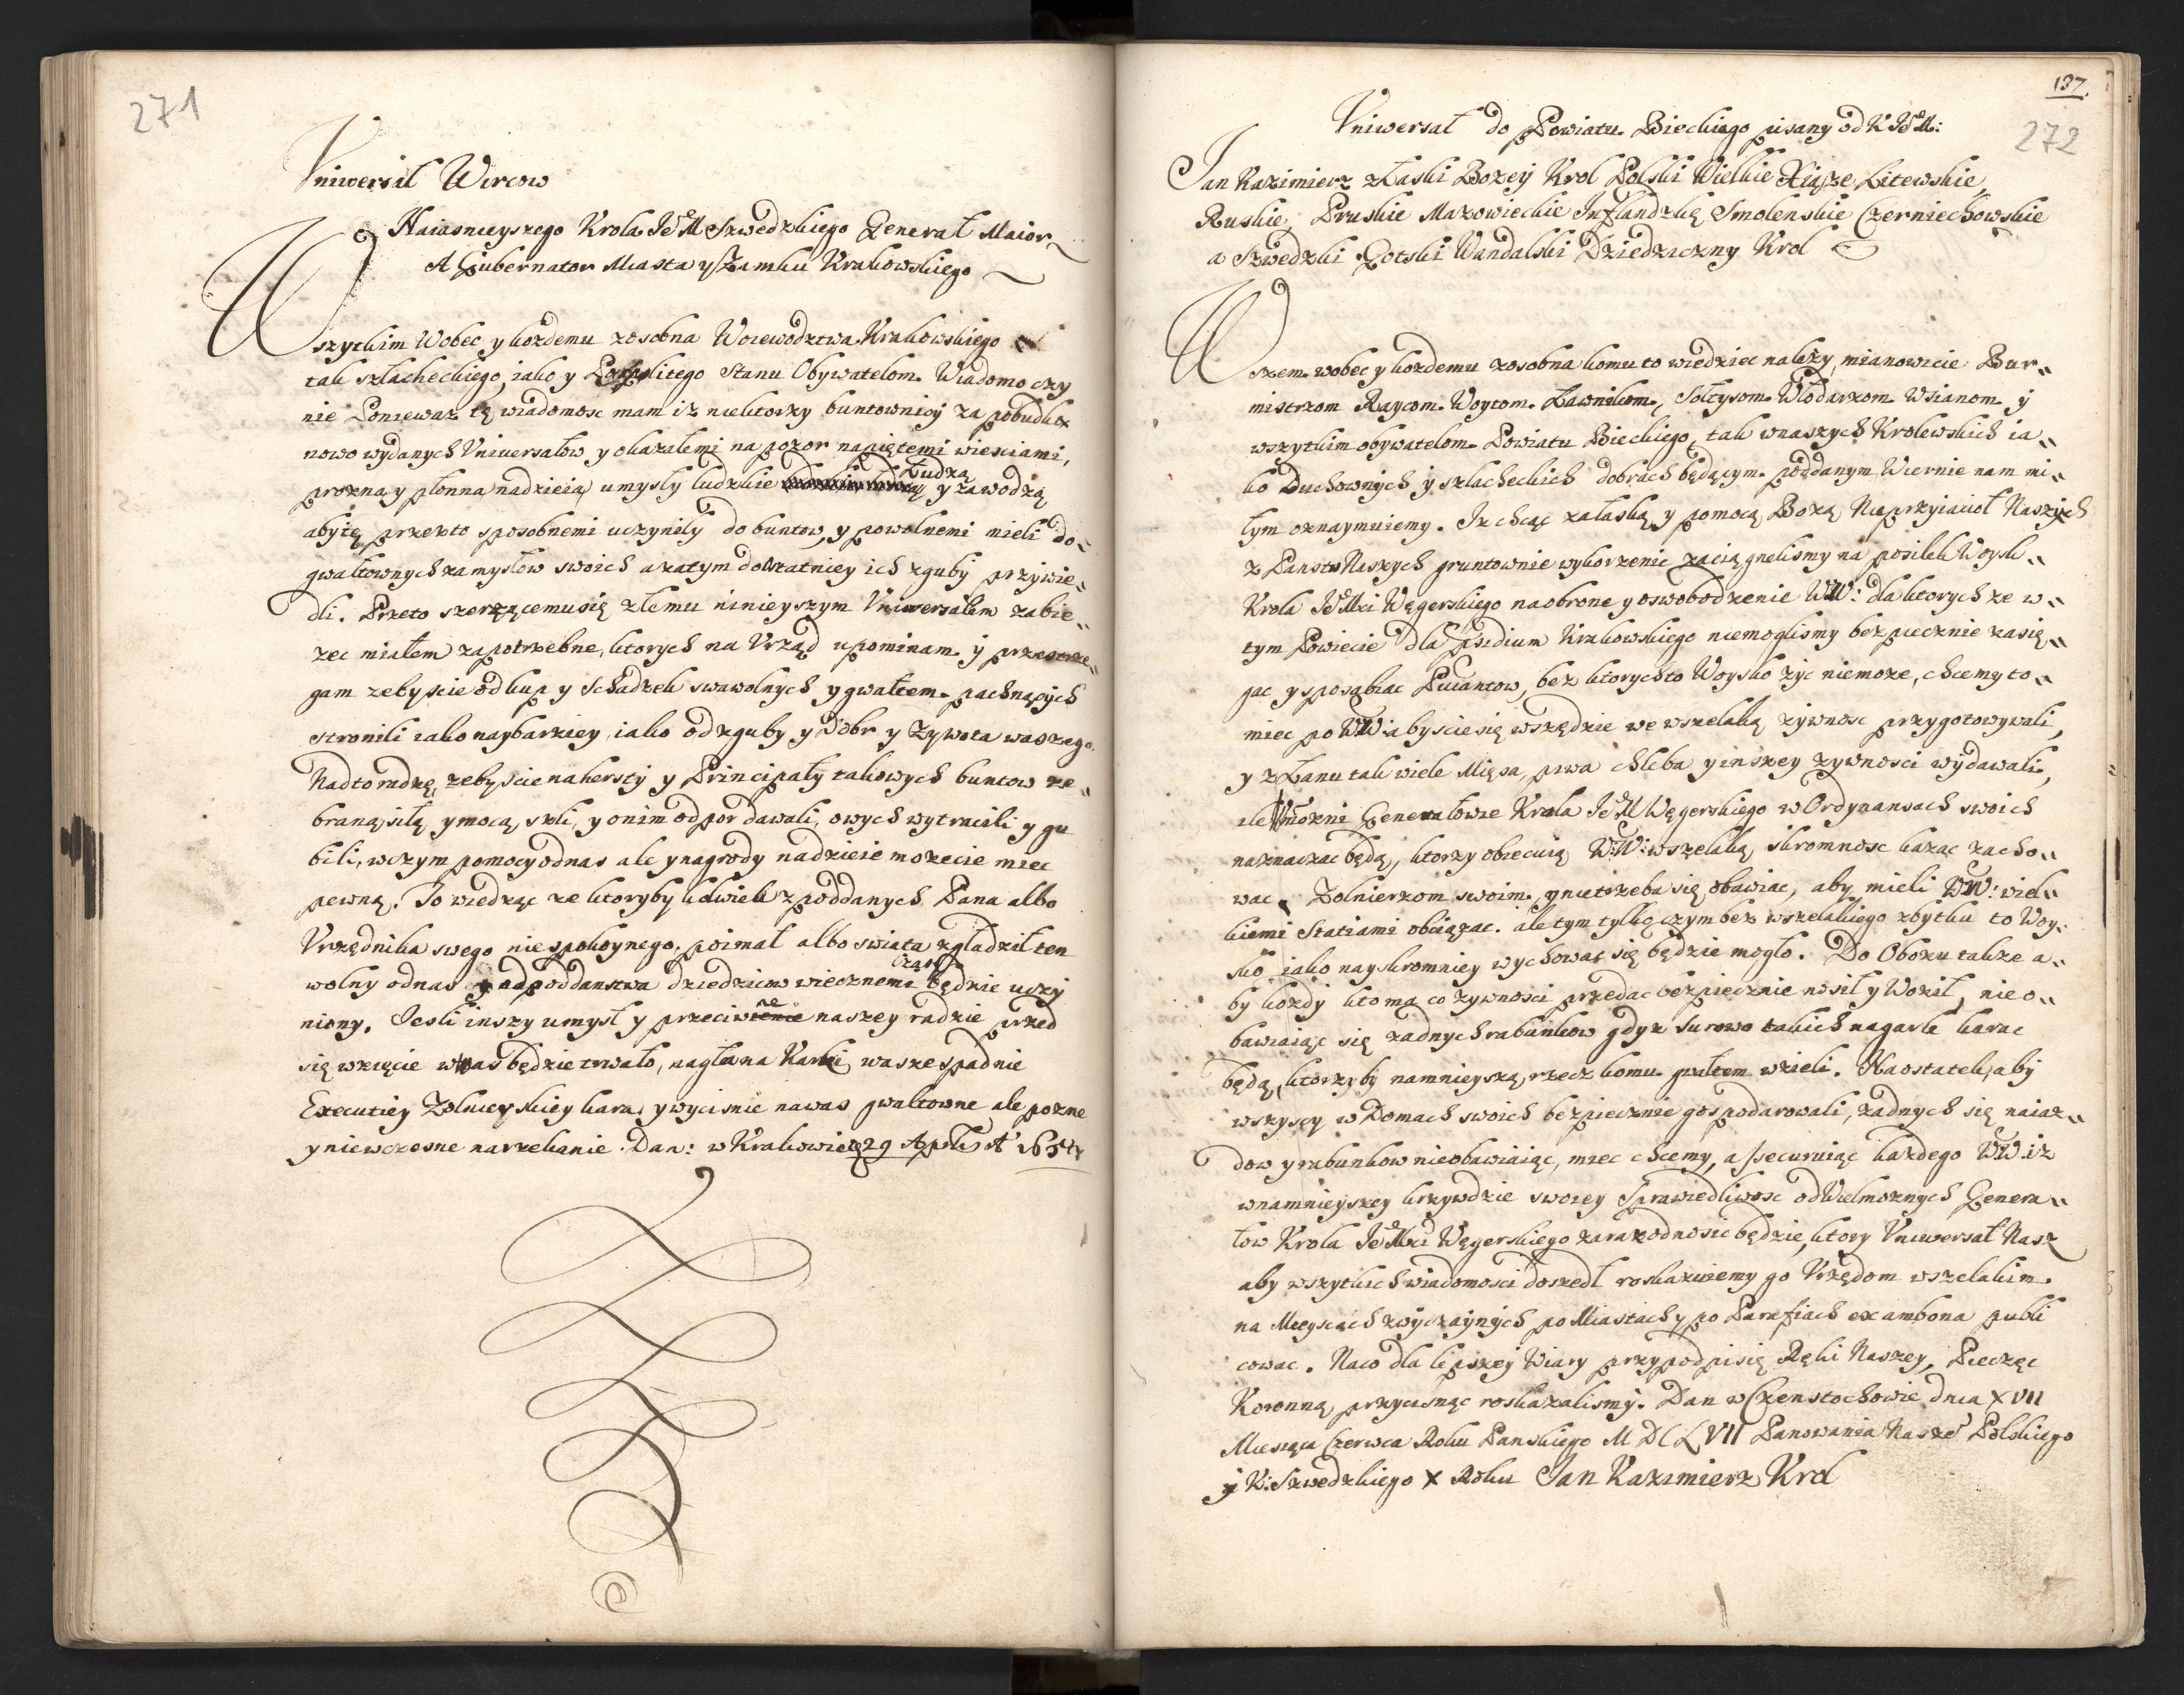 271
Vniwersał Wircow
Naiasnieyszego Krola JeM Szwedzkiego General Maior
A Gubernator Miasta y Zamku Krakowskiego
Wszytkim Wobec y kozdemu zosobna Woiewodztwa Krakowskiego
tak szlacheckiego, iako y Pospolitego Stanu Obywatelom. Wiadomo czy
nie Poniewaz tę wiadomosc mam iz niektorzy buntownicy za pobudką
nowo wydanych Vniwersałow y okazałemi na pozor napiętemi wiesciami,
prozną y płonną nadzieią umysły ludzkie łudzą y zawodzą
aby tę przezto sposobnemi uczynily do buntow, y powolnemi mieli do„
gwałtownych zamysłow swoich a zatym dostatniey ich zguby przywie„
dli. Przeto szerzącemu się złemu ninieyszym Vniwersałem zabie„
zec miałem za potrzebne, ktorych na Vrząd upominam y przestrze„
gam zebyscie od kup y Schadzek swawolnych y gwałtem pachnących
stronili iako naybarziey, iako od zguby y Dobr y Zywota waszego.
Nadto radzę, zebyscie na herszty y Principały takowych buntow ze„
braną siłą y mocą szli, y onim odpor dawali, owych wytracili y gu
bili, w czym pomocy od nas ale y nagrody nadzieie mozecie miec
pewną. To wiedząc ze ktoryby kolwiek z poddanych Pana albo
Vrzędnika swego niespokoynego, poimał albo swiata zgładził ten
wolny od nas y od poddanstwa dziedzicow wiecznemi czasy będzie uczy
niony. Jesli inszy umysł y przeciwne naszey radzie przed
się wzięcie w was będzie trwało, nagła na Karki wasze spadnie
Executiey Zolnierskiey kara, y wycisnie na was gwałtowne ale pozne
y niewczesne narzekanie. Dan: w Krakowie 29 Aplis A 1657
137.
272
Vniwersał do Powiatu Bieckiego pisany od K JeM:
Jan Kazimierz z Łaski Bozey Krol Polski Wielkie Xiąze Litewskie,
Ruskie, Pruskie Mazowieckie Inflandzkie, Smolenskie Czerniechowskie
a Szwedzki Gotski Wandalski Dziedziczny Krol
Wszem wobec y kozdemu zosobna komu to wiedziec nalezy, mianowicie Bur„
mistrzom Raycom Woytom Ławnikom, Sołtysom Włodarzom Wsianom y
wszytkim obywatelom Powiatu Bieckiego, tak w naszych Krolewskich ia„
ko Duchownych y szlacheckich dobrach będącym poddanym Wiernie nam mi„
łym oznaymuiemy. Iz chcąc za łaską y pomocą Bozą Nieprzyiacioł Naszych
z Panstw Naszych gruntownie wykorzenic zaciągnelismy na posiłek Woysk„
Krola JeMci Węgerskiego na obrone y oswobodzenie WW: dla ktorych ze w„
tym Powiecie dla Psidium Krakowskiego niemoglismy bezpiecznie zasię„
gac y sposabiac Puiantow, bez ktorych to Woysko zyc niemoze, chcemy to„
miec po WW: abyscie się wszędzie we wszelaką zywnosc przygotowywali,
y z Łanu tak wiele Mięsa, piwa chleba y inszey zywnosci wydawali,
ile Wmozni Generałowie Krola JeM Węgerskiego w Ordynansach swoich
naznaczac będą, ktorzy obiecuią W:W: wszelaką skromnosc kazac zacho„
wac Zolnierzom swoim, y nietrzeba się obawiac, aby mieli WW: wiel„
kiemi Statiami obciązac. ale tym tylko czym bez wszelakiego zbytku to Woy„
sko iako nayskromniey wychowac się będzie mogło. Do Obozu takze a„
by kozdy kto ma co zywnosci przedac bezpiecznie nosił y Woził, nie o„
bawiaiąc się zadnych rabunkow gdyz surowo takich na garle karac
będą, ktorzyby namnieyszą rzecz komu gwałtem wzieli. Naostatek, aby
wszyscy w Domach swoich bezpiecznie gospodarowali, zadnych się naiaz„
dow y rabunkow nieobawiaiąc, miec chcemy, assecuruiąc kazdego WW. iz
w namnieyszey krzywdzie swoiey Sprawiedliwosc od Wielmoznych Genera„
łow Krola JeMci Węgerskiego zaraz odnosic będzie, ktory Vniwersał Nasz
aby wszytkich wiadomosci doszedł roskazuiemy go Vrzędom wszelakim
na Mieyscach zwyczaynych po Miastach y po Parafiach ex ambona publi
cowac. Na co dla lepszey Wiary przy podpisie Ręki Naszey, Pieczęc
Koronną przycisnąc roskazalismy. Dan w Czenstochowie dnia XVII
Miesiąca Czerwca Roku Panskiego MDCLVII Panowania Nasze Polskiego
y K: Szwedzkiego X Roku Jan Kazimierz Krol